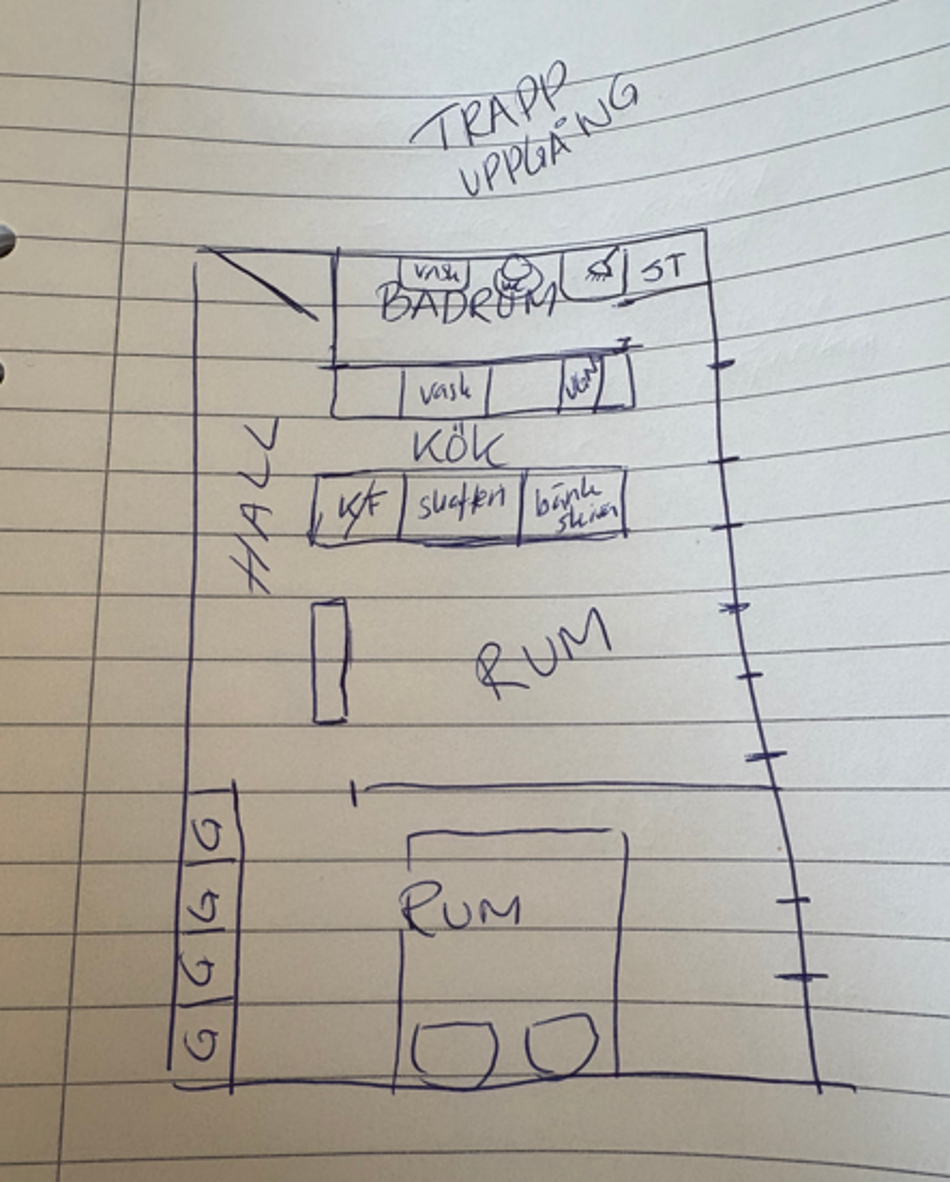 TRAPP
UPPGÅNG
vask
WC
ST
BADRUM
vask
UGN
KÖK
K/F
skafferi
bänk
skiva
HALL
RUM
G
G
G
G
RUM